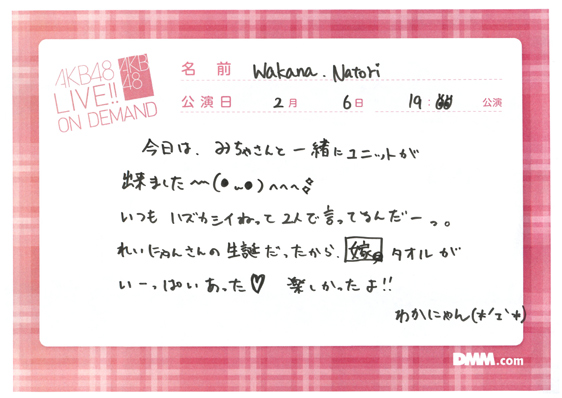 AKB48
LIVE!!
ON DEMAND
AKB
48
名 前 Wakana. Natori
公演日 2月 6日 19: 公演
今日は、みちゃさんと一緒にユニットが
出来ました〜〜(●ᴗ●)^^^
いつもハズカシイねって2人で言ってるんだーっ。
れいにゃんさんの生誕だったから、嫁タオルが
いーっぱいあった♡ 楽しかったよ!!
わかにゃん(*´ェ`*)
DMM.com